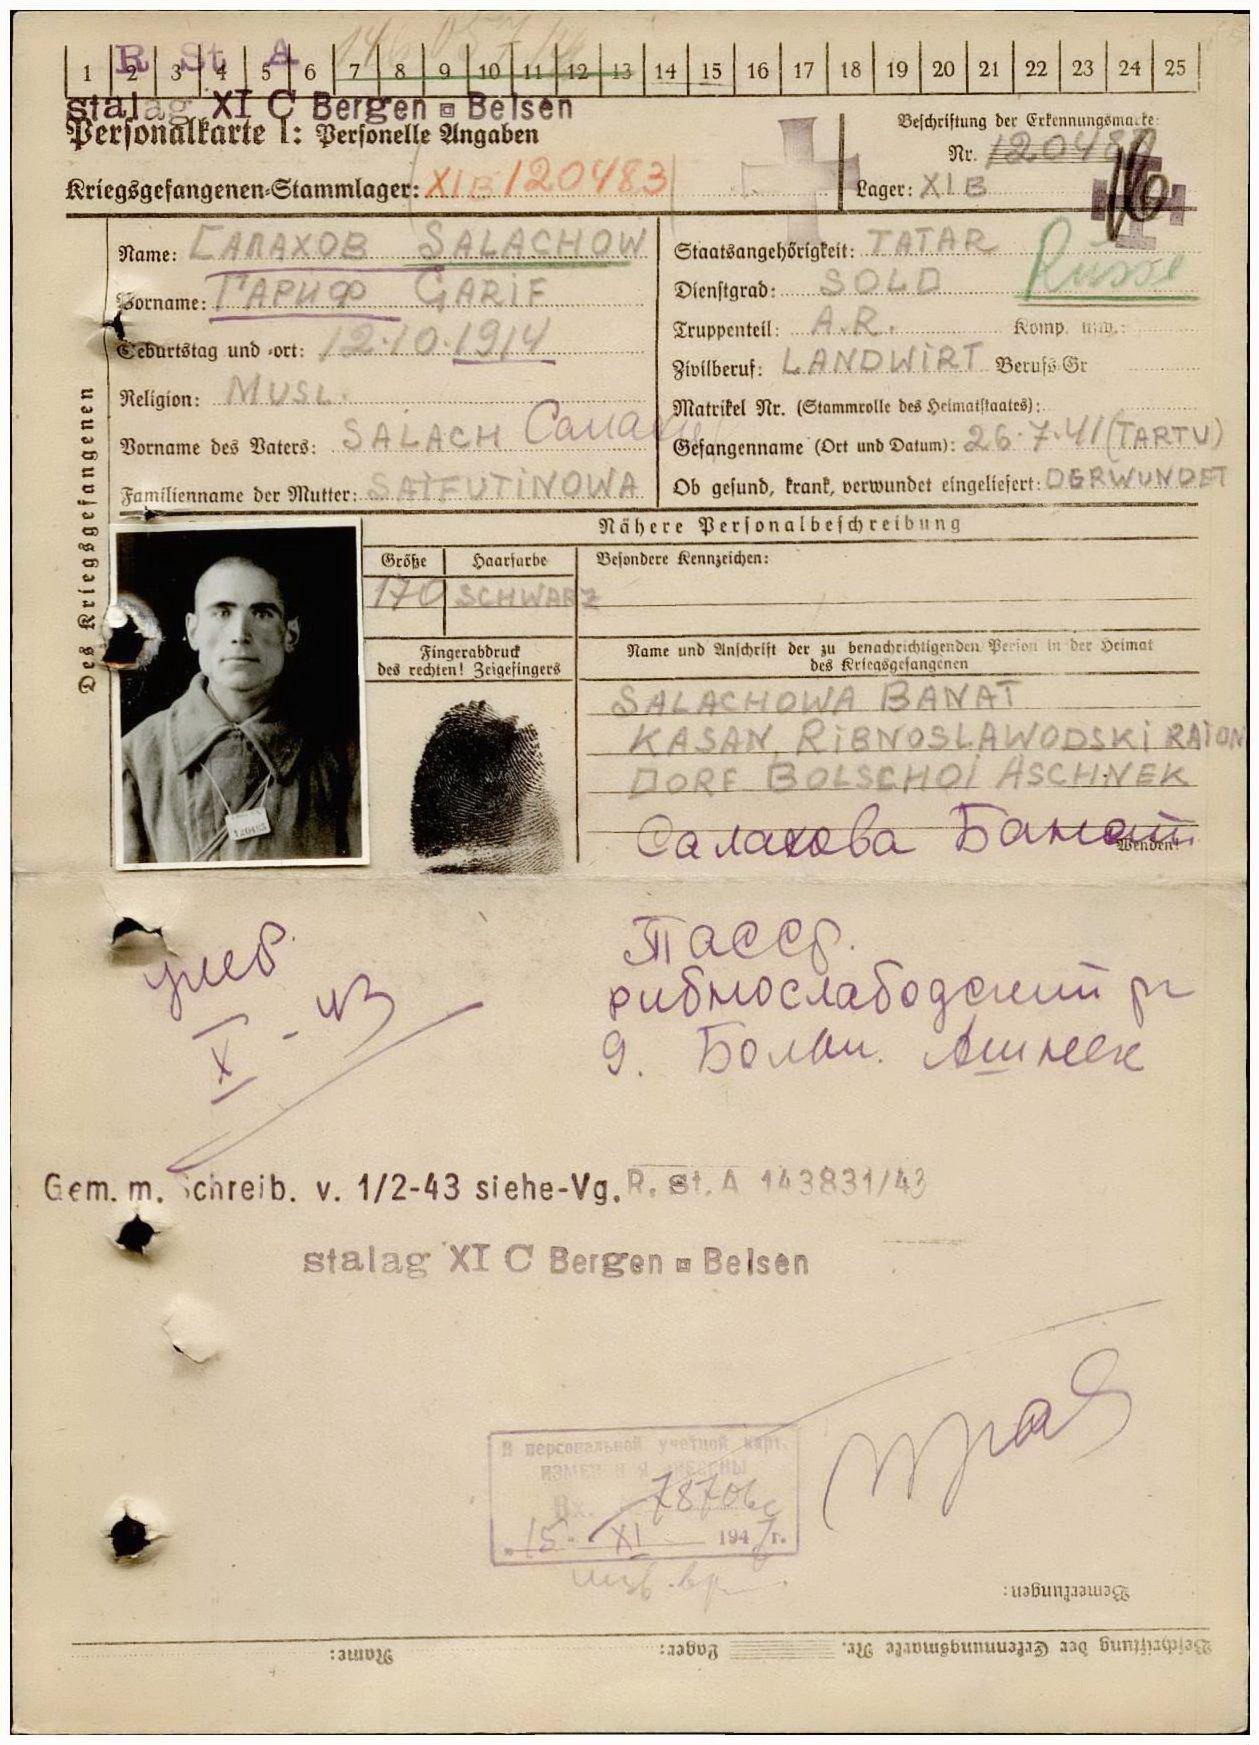 R St A
1 2 3 4 5 6 7 8 9 10 11 12 13 14 15 16 17 18 19 20 21 22 23 24 25
stalag XI C Bergen Belsen
Personalkarte I: Personelle Angaben
Beschriftung der Erkennungsmarke:
Nr. 120483
Kriegsgefangenen-Stammlager: XIB 120483
Lager: XI B
Des Kriegsgefangenen
Name: САЛАХОВ SALACHOW
Vorname: ГАРИФ GARIF
Geburtstag und -ort: 12.10.1914
Religion: MUSL.
Vorname des Vaters: SALACH Салах
Familienname der Mutter: SAIFUTINOWA
Staatsangehörigkeit: TATAR Russe
Dienstgrad: SOLD
Truppenteil: A.R. Komp. usw.:
Zivilberuf: LANDWIRT Berufs-Gr
Matrikel Nr. (Stammrolle des Heimatstaates):
Gefangenname (Ort und Datum): 26.7.41 (TARTU)
Ob gesund, krank, verwundet eingeliefert: VERWUNDET
Nähere Personalbeschreibung
Größe Haarfarbe Besondere Kennzeichen:
170 SCHWARZ
Fingerabdruck
des rechten! Zeigefingers
Name und Anschrift der zu benachrichtigenden Person in der Heimat
des Kriegsgefangenen
SALACHOWA BANAT
KASAN, RIBNOSLAWODSKI RAION
DORF BOLSCHOI ASCHNEK
Салахова Банат
Wenden!
120483
Тасср.
рибнослабодский рн
д. Больш. Ашнек
X - 43
Gem. m. Schreib. v. 1/2-43 siehe-Vg. R. St. A 143831/43
stalag XI C Bergen Belsen
В персональной учетной карт.
ИЗМЕНЕНИЯ ВНЕСЕНЫ
Вх. 78706с
"15" XI 1947 г.
Bemerkungen:
Name: Lager: Beschriftung der Erkennungsmarke Nr.